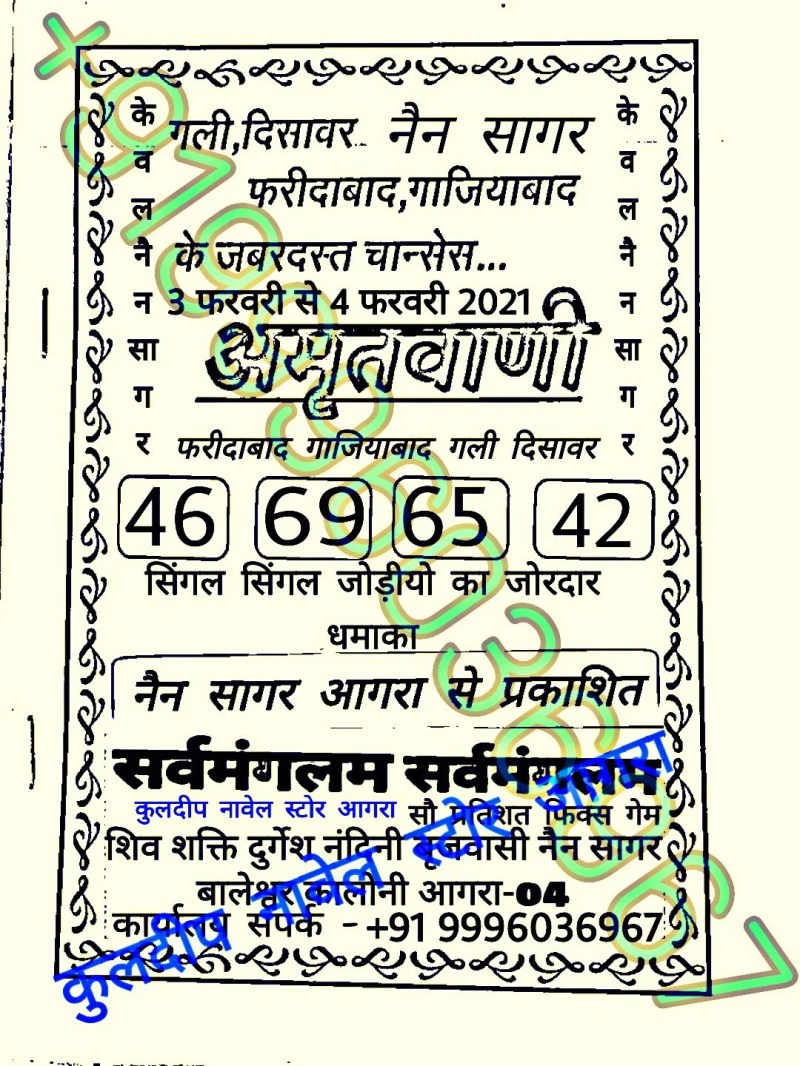 केवल नैन सागर
गली,दिसावर.. नैन सागर
केवल नैन सागर
फरीदाबाद,गाजियाबाद
के जबरदस्त चान्सेस...
3 फरवरी से 4 फरवरी 2021
अमृतवाणी
फरीदाबाद गाजियाबाद गली दिसावर
46 69 65 42
सिंगल सिंगल जोड़ीयो का जोरदार
धमाका
नैन सागर आगरा से प्रकाशित
सर्वमंगलम सर्वमंगलम
कुलदीप नावेल स्टोर आगरा सौ प्रतिशत फिक्स गेम
शिव शक्ति दुर्गेश नंदिनी बृजवासी नैन सागर
बालेश्वर कालोनी आगरा-04
कार्यालय संपर्क - +91 9996036967
कुलदीप नावेल स्टोर आगरा
+919996036967